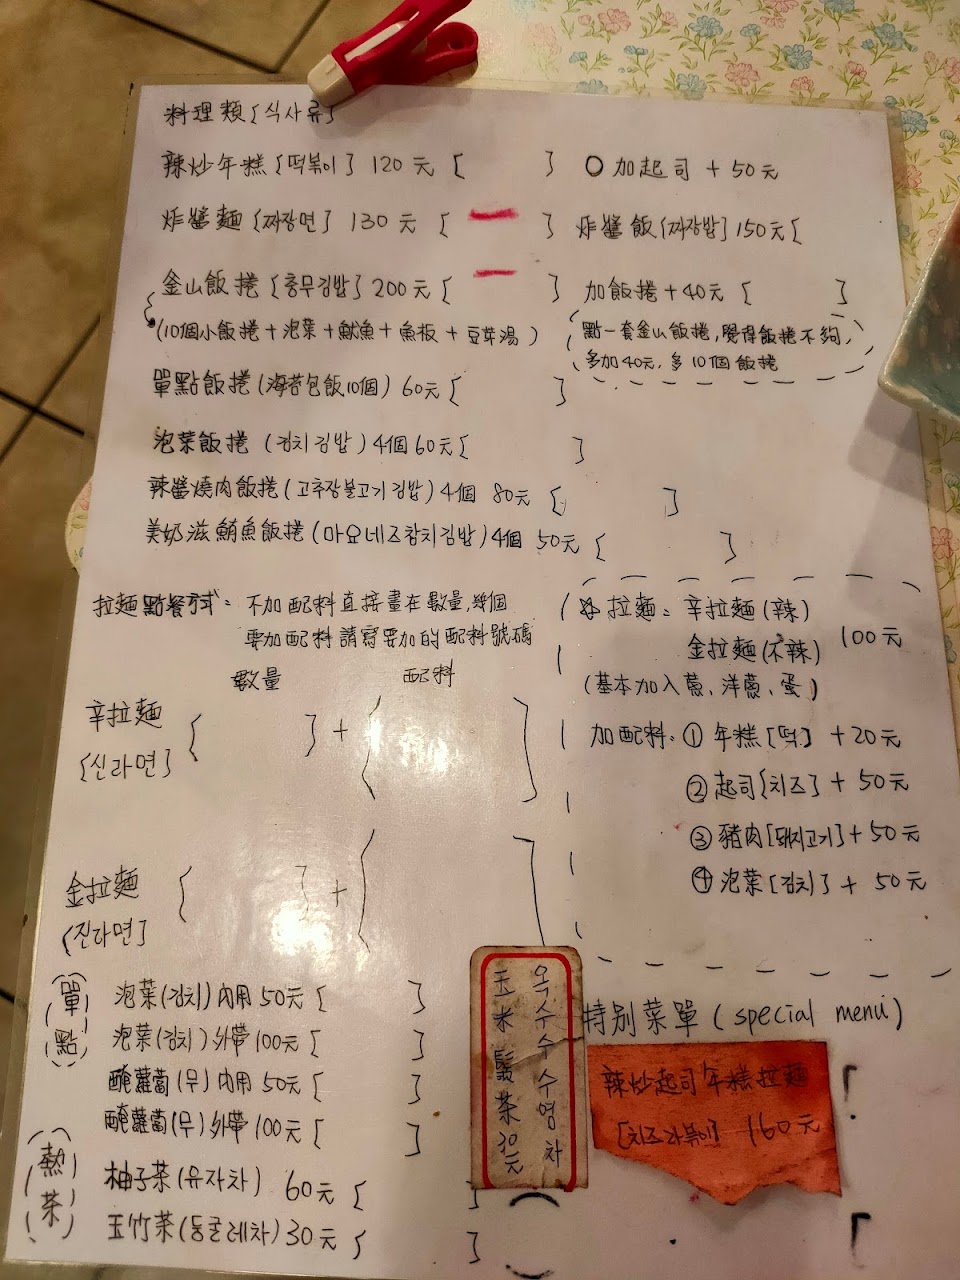 料理類[식사류]
辣炒年糕[떡볶이] 120元 [ ] ○加起司 + 50元
炸醬麵[짜장면] 130元 [ ] 炸醬飯[짜장밥] 150元[
金山飯捲[충무김밥] 200元 [ ] 加飯捲 + 40元 [ ]
(10個小飯捲 + 泡菜 + 魷魚 + 魚板 + 豆芽湯)
點一套金山飯捲,覺得飯捲不夠,
多加40元,多10個飯捲
單點飯捲(海苔包飯10個) 60元 [ ]
泡菜飯捲 (김치김밥) 4個 60元[ ]
辣醬燒肉飯捲(고추장불고기김밥) 4個 80元 [ ]
美奶滋鮪魚飯捲(마요네즈참치김밥) 4個 50元 [ ]
拉麵點餐方式: 不加配料直接畫在數量,幾個
要加配料請寫要加的配料號碼
數量 配料
辛拉麵 [ ] + [ ]
[신라면]
金拉麵 [ ] + [ ]
(진라면]
☆拉麵: 辛拉麵(辣)
金拉麵(不辣) 100元
(基本加入蔥、洋蔥、蛋)
加配料: ① 年糕[떡] + 20元
② 起司[치즈] + 50元
③ 豬肉[돼지고기] + 50元
④ 泡菜[김치] + 50元
單點
泡菜(김치)內用 50元 [ ]
泡菜(김치)外帶 100元 [ ]
醃蘿蔔(무)內用 50元 [ ]
醃蘿蔔(무)外帶 100元 [ ]
熱茶
柚子茶(유자차) 60元 [ ]
玉竹茶(둥굴레차) 30元 [ ]
옥수수수염차
玉米鬚茶30元
特別菜單(special menu)
辣炒起司年糕拉麵
[치즈라볶이] 160元